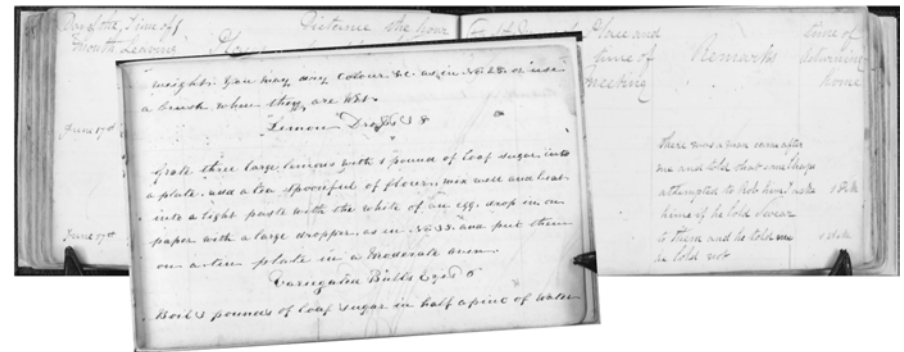 Day of the Time of Distance the hour Place and time of
Month Leaving time of Remarks returning
meeting home
June 17th
There was a man came after
me and told that some chaps
attempted to Rob him I aske
hime if he Cold Swear
to them and he told me
he Cold not
June 17th
weight. You may any colour &c. as in No. 28. or use
a brush when they are Wet.
Lemon Drops
Grate three large lemons with 1 pound of loaf sugar into
a plate. add a tea spoonful of flour. mix well and beat
into a light paste with the white of an egg. drop in on
paper with a large dropper. as in No. 33. and put them
on a tin plate in a moderate oven.
Variegated Bulls Eyes
Boil 3 pounds of loaf sugar in half a pint of water